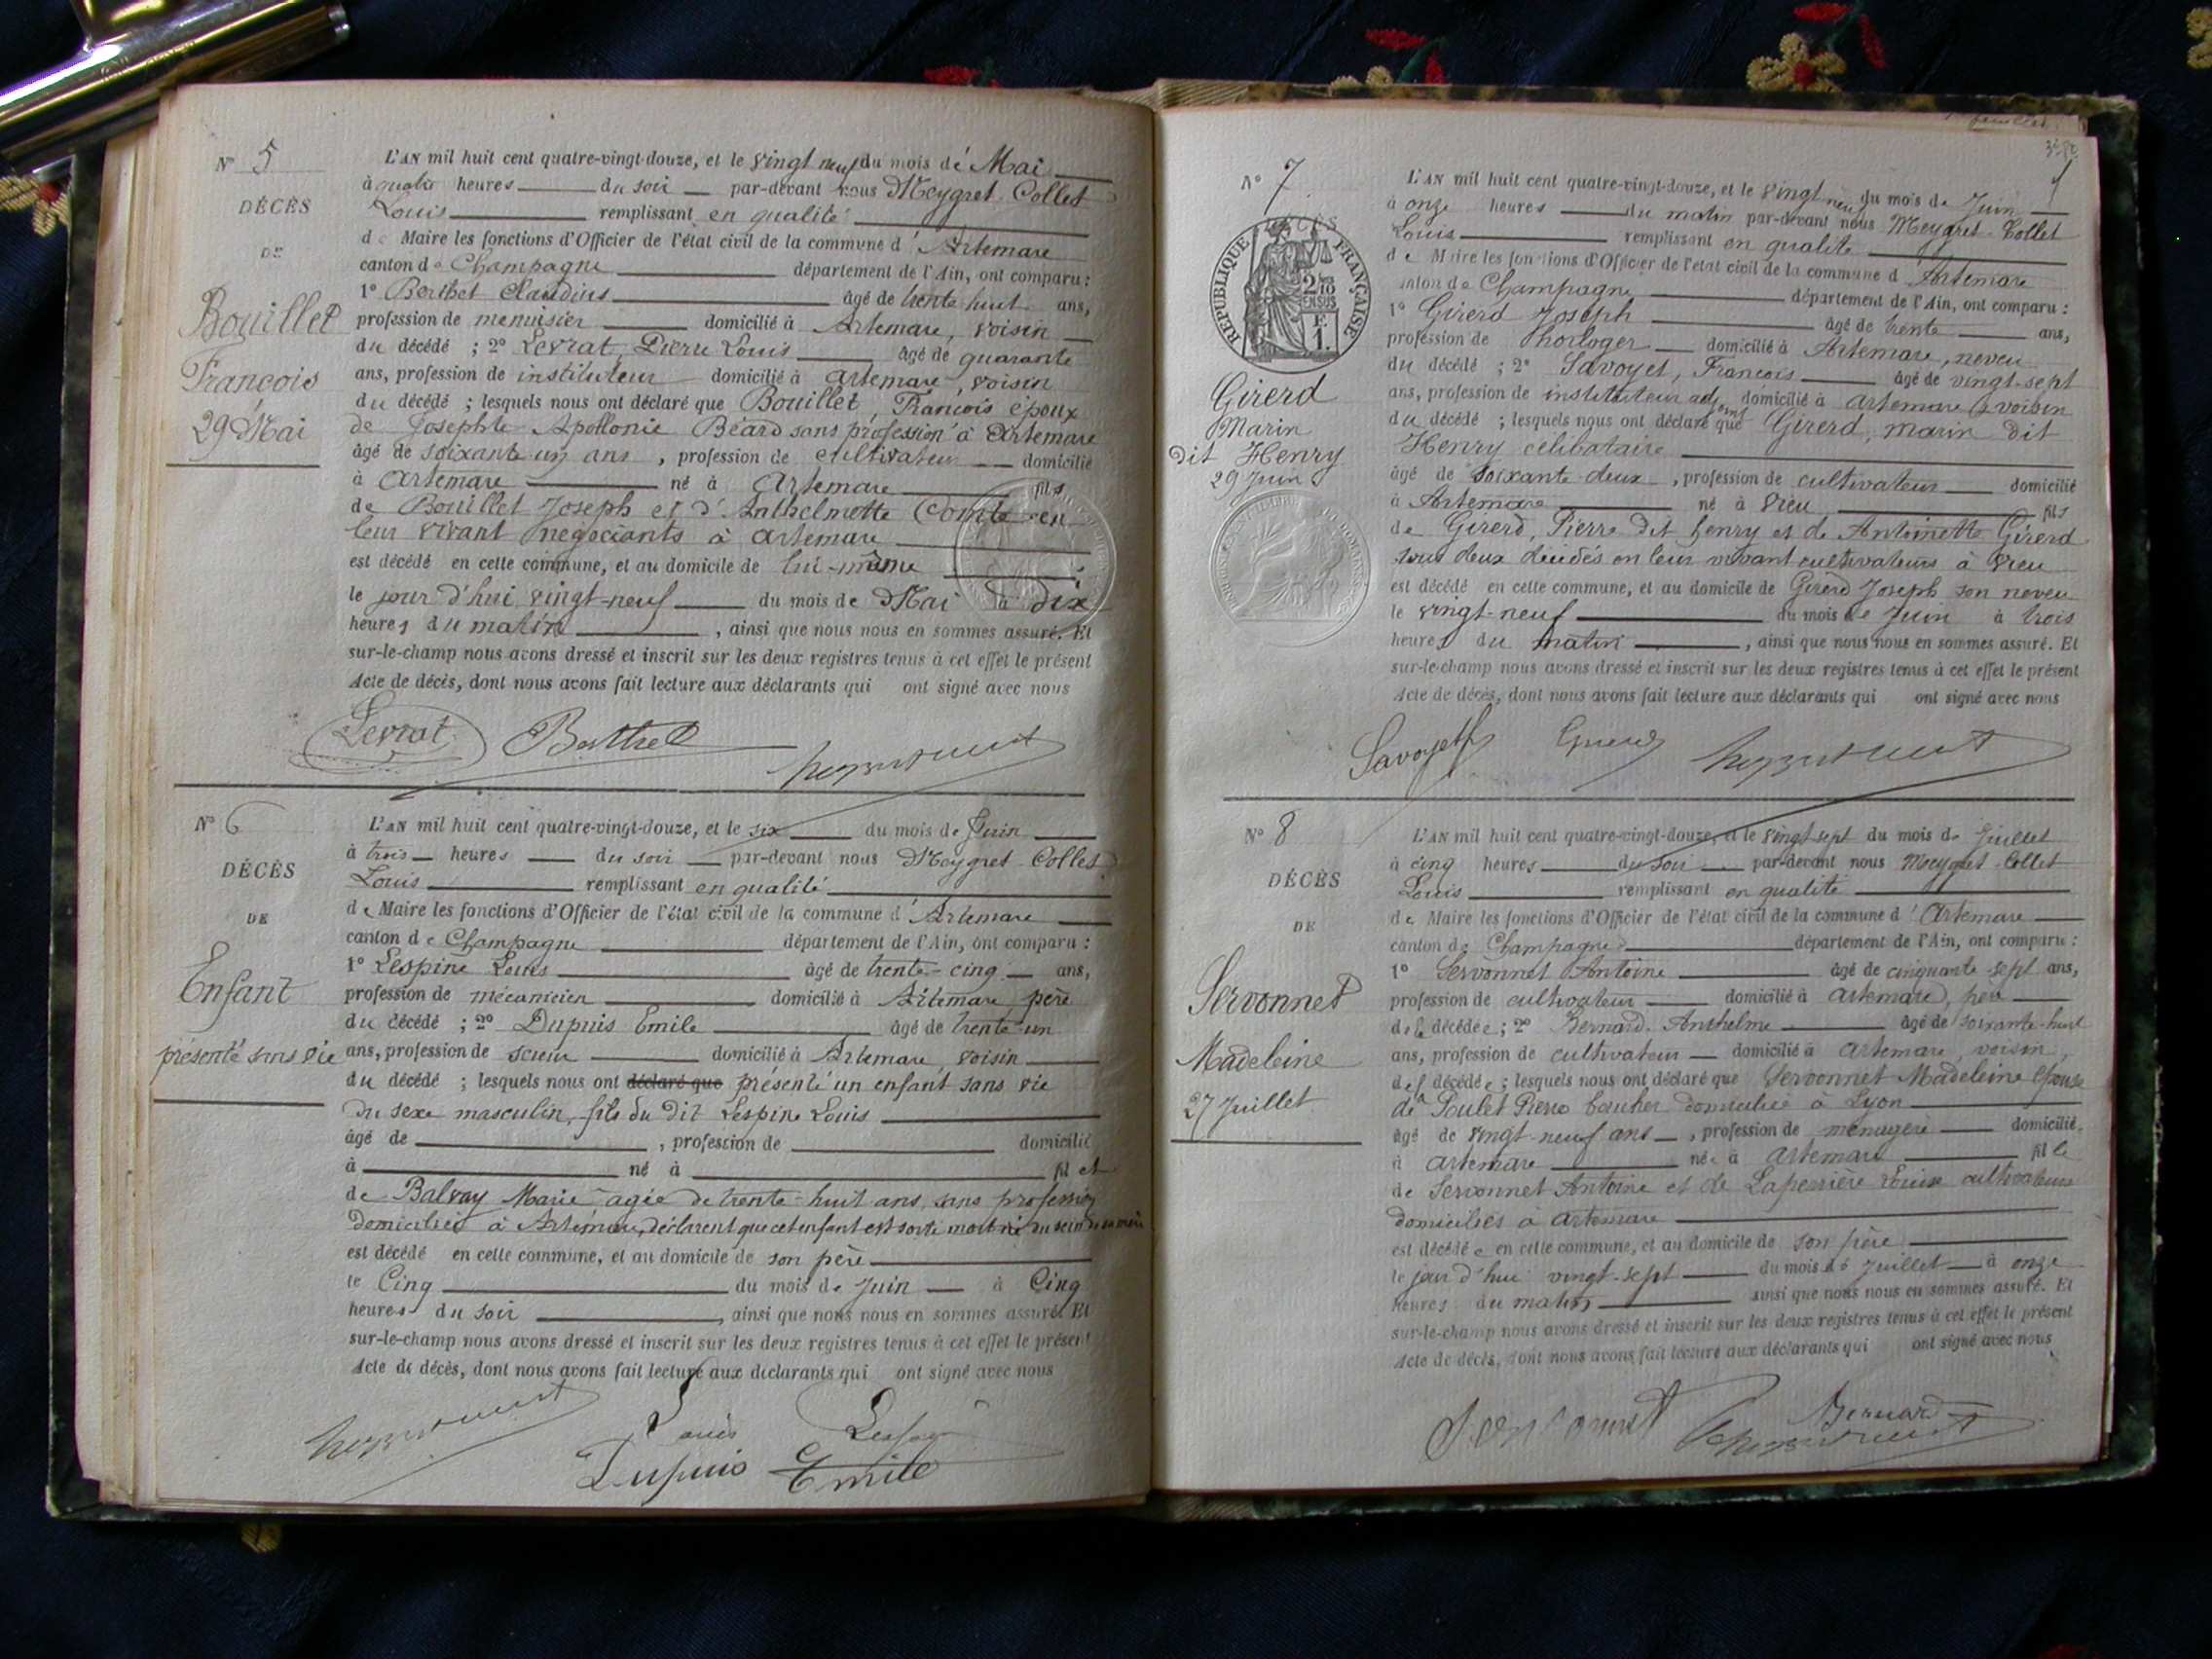 N° 5
DÉCÈS
DE
Bouillet
François
29 Mai
L'AN mil huit cent quatre-vingt-douze, et le vingt neuf du mois de Mai
à quatre heures du soir par-devant nous Meygret-Collet
Louis remplissant en qualité
de Maire les fonctions d'Officier de l'état civil de la commune d'Artemare
canton de Champagne département de l'Ain, ont comparu :
1° Berthet Claudius âgé de trente huit ans,
profession de menuisier domicilié à Artemare, voisin
du décédé ; 2° Levrat, Pierre Louis âgé de quarante
ans, profession de instituteur domicilié à Artemare, voisin
du décédé ; lesquels nous ont déclaré que Bouillet, François époux
de Josephte Apollonie Béard sans profession à Artemare
âgé de soixante un ans, profession de cultivateur domicilié
à Artemare né à Artemare fils
de Bouillet Joseph et d'Anthelmette Comte en
leur vivant négociants à Artemare
est décédé en cette commune, et au domicile de lui-même
le jour d'hui vingt-neuf du mois de Mai à dix
heures du matin, ainsi que nous nous en sommes assuré. Et
sur-le-champ nous avons dressé et inscrit sur les deux registres tenus à cet effet le présent
Acte de décès, dont nous avons fait lecture aux déclarants qui ont signé avec nous
Levrat Berthet
N° 6
DÉCÈS
DE
Enfant
présenté sans vie
L'AN mil huit cent quatre-vingt-douze, et le six du mois de Juin
à trois heures du soir par-devant nous Meygret-Collet
Louis remplissant en qualité
de Maire les fonctions d'Officier de l'état civil de la commune d'Artemare
canton de Champagne département de l'Ain, ont comparu :
1° Lespine Louis âgé de trente-cinq ans,
profession de mécanicien domicilié à Artemare père
du décédé ; 2° Dupuis Emile âgé de trente-un
ans, profession de scieur domicilié à Artemare voisin
du décédé ; lesquels nous ont déclaré que présenté un enfant sans vie
du sexe masculin, fils du dit Lespine Louis
âgé de , profession de domicilié
à né à fil et
de Balvay Marie âgée de trente-huit ans, sans profession
domiciliée à Artemare, déclarent que cet enfant est sorti mort-né du sein de sa mère
est décédé en cette commune, et au domicile de son père
le Cinq du mois de Juin à Cinq
heures du soir, ainsi que nous nous en sommes assuré. Et
sur-le-champ nous avons dressé et inscrit sur les deux registres tenus à cet effet le présent
Acte de décès, dont nous avons fait lecture aux déclarants qui ont signé avec nous
Louis
Dupuis Emile
N° 7
DÉCÈS
RÉPUBLIQUE FRANÇAISE
2 2/10
EN SUS
E
1.
Girerd
Marin
dit Henry
29 Juin
L'AN mil huit cent quatre-vingt-douze, et le vingt neuf du mois de Juin
à onze heures du matin par-devant nous Meygret-Collet
Louis remplissant en qualité
de Maire les fonctions d'Officier de l'état civil de la commune d'Artemare
canton de Champagne département de l'Ain, ont comparu :
1° Girerd Joseph âgé de trente ans,
profession de horloger domicilié à Artemare, neveu
du décédé ; 2° Savoyet, François âgé de vingt-sept
ans, profession de instituteur adjoint domicilié à Artemare voisin
du décédé ; lesquels nous ont déclaré que Girerd, marin dit
Henry célibataire
âgé de soixante-deux, profession de cultivateur domicilié
à Artemare né à Vieu fils
de Girerd, Pierre dit henry et de Antoinette Girerd
tous deux décédés en leur vivant cultivateurs à Vieu
est décédé en cette commune, et au domicile de Girerd Joseph son neveu
le vingt-neuf du mois de Juin à trois
heures du matin, ainsi que nous nous en sommes assuré. Et
sur-le-champ nous avons dressé et inscrit sur les deux registres tenus à cet effet le présent
Acte de décès, dont nous avons fait lecture aux déclarants qui ont signé avec nous
Savoyet Girerd
N° 8
DÉCÈS
DE
Servonnet
Madeleine
27 Juillet
L'AN mil huit cent quatre-vingt-douze, et le vingt sept du mois de Juillet
à cinq heures du soir par-devant nous Meygret-Collet
Louis remplissant en qualité
de Maire les fonctions d'Officier de l'état civil de la commune d'Artemare
canton de Champagne département de l'Ain, ont comparu :
1° Servonnet Antoine âgé de cinquante-sept ans,
profession de cultivateur domicilié à Artemare, père
de la décédée ; 2° Bernard Anthelme âgé de soixante-huit
ans, profession de cultivateur domicilié à Artemare, voisin
de la décédée ; lesquels nous ont déclaré que Servonnet Madeleine épouse
de Poulet Pierre domicilié à Lyon
âgé de vingt-neuf ans, profession de ménagère domicilié
à Artemare née à Artemare fille
de Servonnet Antoine et de Laperrière Louise cultivateurs
domiciliés à Artemare
est décédée en cette commune, et au domicile de son père
le jour d'hui vingt-sept du mois de Juillet à onze
heures du matin ainsi que nous nous en sommes assuré. Et
sur-le-champ nous avons dressé et inscrit sur les deux registres tenus à cet effet le présent
Acte de décès, dont nous avons fait lecture aux déclarants qui ont signé avec nous
Servonnet Bernard